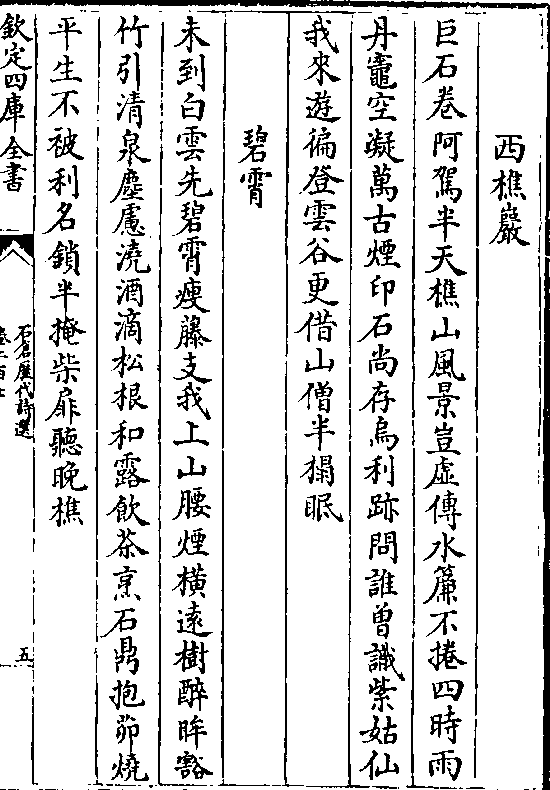 西樵巖
巨石卷阿駕半天樵山風景豈虛傳水簾不捲四時雨
丹竈空凝萬古煙印石尚存烏利跡問誰曽識紫姑仙
我來遊徧登雲谷更借山僧半榻眠
碧霄
未到白雲先碧霄瘦藤支我上山腰煙橫遠樹醉眸豁
竹引清泉塵慮澆酒滴松根和露飲茶烹石鼎抱茆燒
平生不被利名鎖半掩柴扉聽晚樵
欽定四庫全書
石倉歷代詩選
五